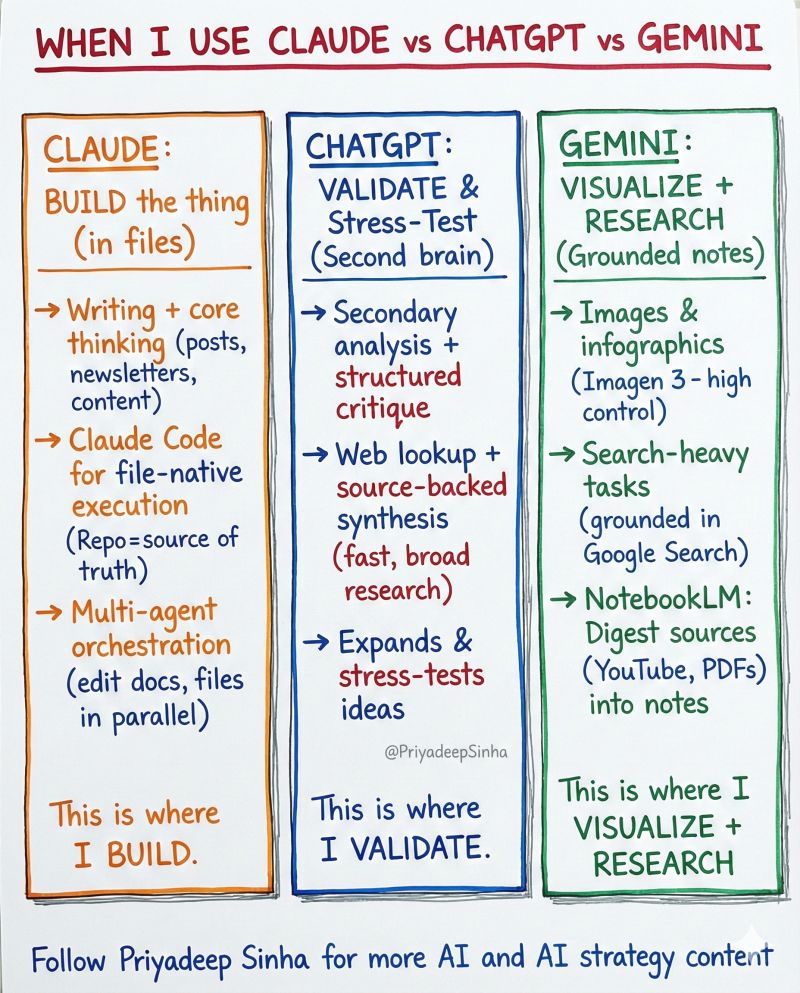 WHEN I USE CLAUDE vs CHATGPT vs GEMINI
CLAUDE:
BUILD the thing
(in files)
→ Writing + core
thinking (posts,
newsletters,
content)
→ Claude Code
for file-native
execution
(Repo=source of
truth)
→ Multi-agent
orchestration
(edit docs, files
in parallel)
This is where
I BUILD.
CHATGPT:
VALIDATE &
Stress-Test
(Second brain)
→ Secondary
analysis +
structured
critique
→ Web lookup +
source-backed
synthesis
(fast, broad
research)
→ Expands &
stress-tests
ideas
@PriyadeepSinha
This is where
I VALIDATE.
GEMINI:
VISUALIZE +
RESEARCH
(Grounded notes)
→ Images &
infographics
(Imagen 3 - high
control)
→ Search-heavy
tasks
(grounded in
Google Search)
→ NotebookLM:
Digest sources
(YouTube, PDFs)
into notes
This is where I
VISUALIZE +
RESEARCH
Follow Priyadeep Sinha for more AI and AI strategy content